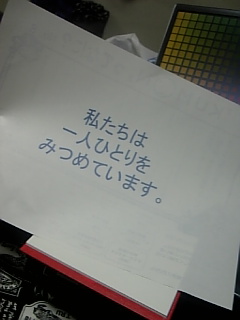 私たちは
一人ひとりを
みつめています。